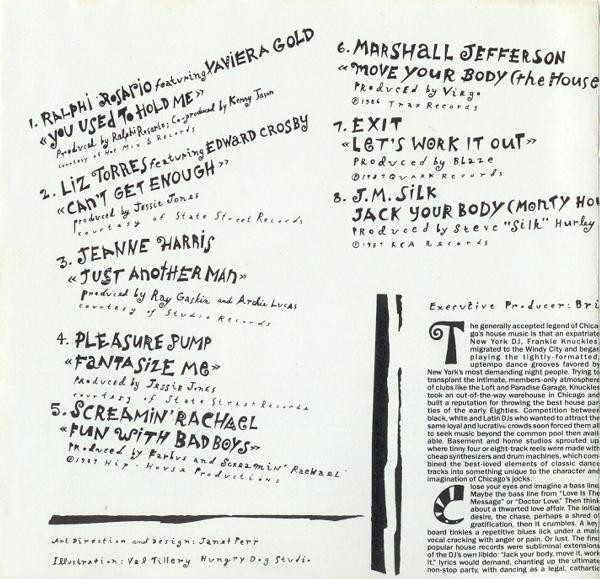 1. RALPHI ROSARIO featuring XAVIERA GOLD
«YOU USED TO HOLD ME»
Produced by Ralphi Rosario; Co-produced by Kenny Jason
courtesy of Hot Mix 5 Records
2. LIZ TORRES featuring EDWARD CROSBY
«CAN'T GET ENOUGH»
produced by Jessie Jones
courtesy of State Street Records
3. JEANNE HARRIS
«JUST ANOTHER MAN»
produced by Ray Gaskin and Archie Lucas
courtesy of Studio Records
4. PLEASURE PUMP
«FANTASIZE ME»
Produced by Jessie Jones
courtesy of State Street Records
5. SCREAMIN' RACHAEL
«FUN WITH BAD BOYS»
Produced by Farbus and Screamin' Rachael
©1987 Hip-House Productions
Art Direction and Design: Janet Perr
Illustration: Val Tillery Hungry Dog Studio
6. MARSHALL JEFFERSON
«MOVE YOUR BODY (the House
Produced by Virgo
℗1986 Trax Records
7. EXIT
«LET'S WORK IT OUT»
Produced by Blaze
℗1987 Quark Records
8. J.M. SILK
JACK YOUR BODY (MONTY HOU
Produced by Steve "Silk" Hurley
℗1987 RCA Records
Executive Producer: Bri
The generally accepted legend of Chica-
go's house music is that an expatriate
New York DJ, Frankie Knuckles,
migrated to the Windy City and began
playing the tightly-formatted,
uptempo dance grooves favored by
New York's most demanding night people. Trying to
transplant the intimate, members-only atmosphere
of clubs like the Loft and Paradise Garage, Knuckles
took an out-of-the-way warehouse in Chicago and
built a reputation for throwing the best house par-
ties of the early Eighties. Competition between
black, white and Latin DJs who wanted to attract the
same loyal and lucrative crowds soon forced them all
to seek music beyond the common pool then avail-
able. Basement and home studios sprouted up,
where tiny four or eight-track reels were made with
cheap synthesizers and drum machines, which com-
bined the best-loved elements of classic dance
tracks into something unique to the character and
imagination of Chicago's jocks.
Close your eyes and imagine a bass line.
Maybe the bass line from "Love Is The
Message" or "Doctor Love." Then think
about a thwarted love affair. The initial
desire, the chase, perhaps a shred of
gratification, then it crumbles. A key-
board tinkles a repetitive blues lick under a male
vocal cracking with anger or pain. Or lust. The first
popular house records were subliminal extensions
of the DJ's own libido: "Jack your body, move it, work
it," lyrics would demand, chanting up the ultimate
non-stop party, with dancing as a legal, cathartic